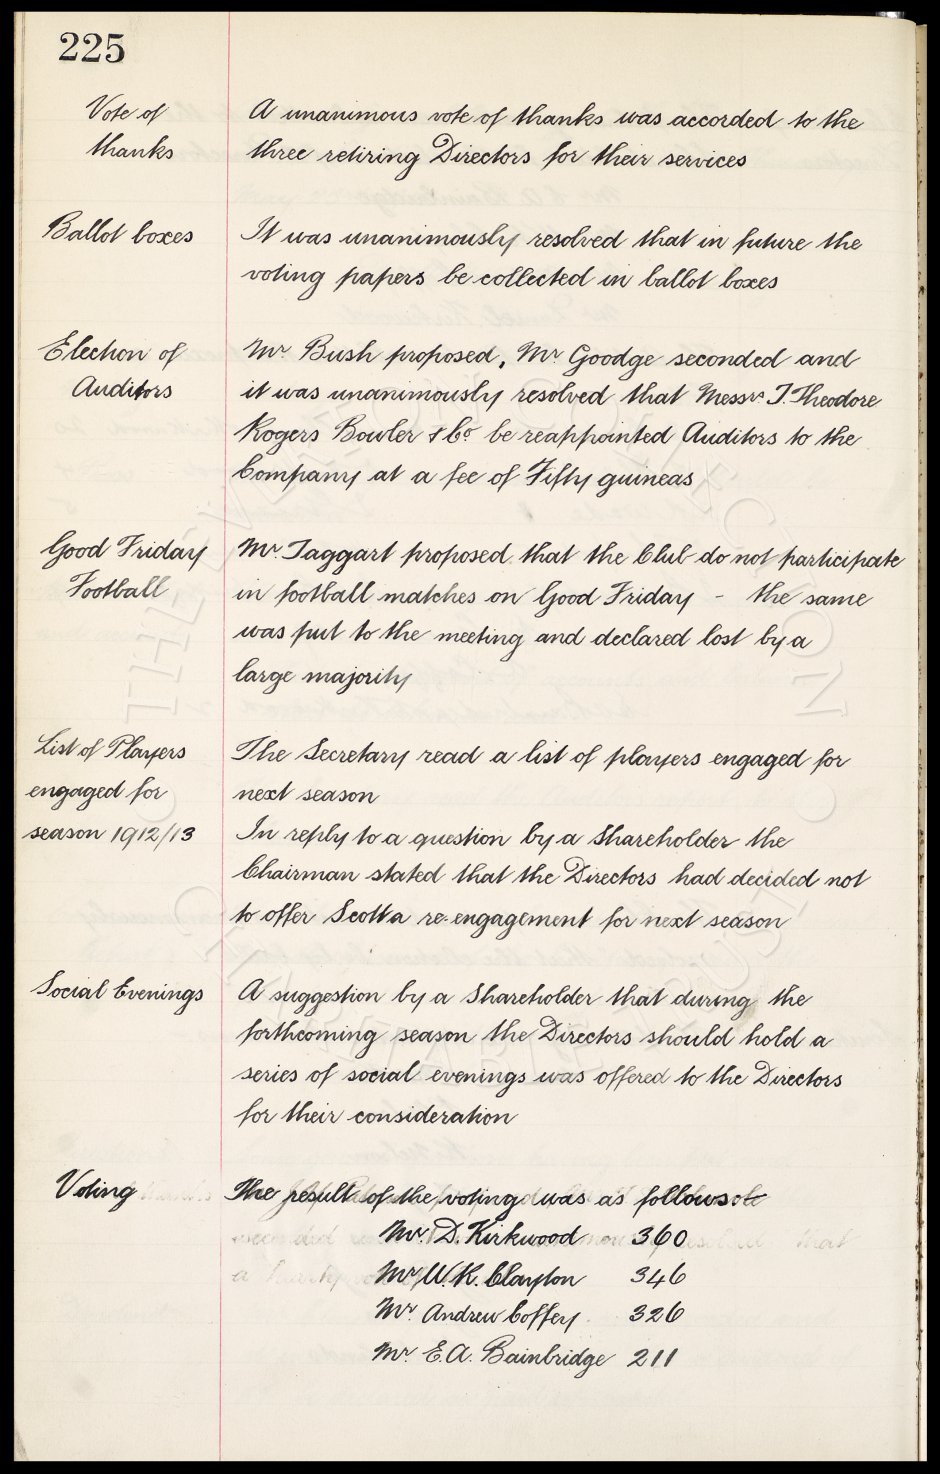 225
Vote of
thanks
A unanimous vote of thanks was accorded to the
three retiring Directors for their services
Ballot boxes
It was unanimously resolved that in future the
voting papers be collected in ballot boxes
Election of
Auditors
Mr Bush proposed, Mr Goodge seconded and
it was unanimously resolved that Messrs T. Theodore
Rogers Bowler & Co be reappointed Auditors to the
Company at a fee of Fifty guineas
Good Friday
Football
Mr. Taggart proposed that the Club do not participate
in football matches on Good Friday - the same
was put to the meeting and declared lost by a
large majority
List of Players
engaged for
season 1912/13
The Secretary read a list of players engaged for
next season
In reply to a question by a Shareholder the
Chairman stated that the Directors had decided not
to offer Scott a re-engagement for next season
Social Evenings
A suggestion by a Shareholder that during the
forthcoming season the Directors should hold a
series of social evenings was offered to the Directors
for their consideration
Voting
The result of the voting was as follows
Mr. D. Kirkwood 360
Mr W. K. Clayton 346
Mr Andrew Coffey 326
Mr. E. A. Bainbridge 211